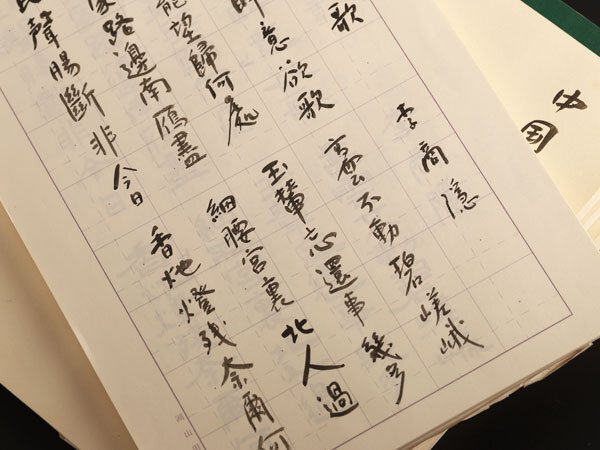 中国
歌 李商隱
眸意欲歌 高雲不動碧嵯峨
罷望歸何處 玉輦忘還事幾多
路邊南鴈盡 細腰宮裏北人過
聲腸斷非今日 香灺燈残奈爾何